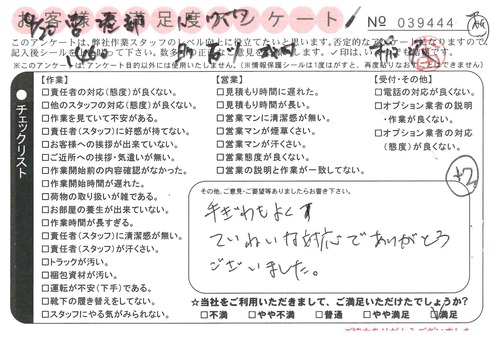 お客様満足度アンケート
No 039444
このアンケートは、弊社作業スタッフのレベル向上に役立てたいと思います。否定的な
※このアンケートは、アンケート目的以外には使用いたしません。(※情報保護シールは1度はがすと、再度貼りなおしはできません)
チェックリスト
【作業】
□責任者の対応(態度)が良くない。
□他のスタッフの対応(態度)が良くない。
□作業を見ていて不安がある。
□責任者(スタッフ)に好感が持てない。
□お客様への挨拶が出来ていない。
□ご近所への挨拶・気遣いが無い。
□作業開始前の内容確認がなかった。
□作業開始時間が遅れた。
□荷物の取り扱いが雑である。
□お部屋の養生が出来ていない。
□作業時間が長すぎる。
□責任者(スタッフ)に清潔感が無い。
□責任者(スタッフ)が汗くさい。
□トラックが汚い。
□梱包資材が汚い。
□運転が不安(下手)である。
□靴下の履き替えをしてない。
□スタッフにやる気がみられない。
【営業】
□見積もり時間に遅れた。
□見積もり時間が長い。
□営業マンに清潔感が無い。
□営業マンが煙草くさい。
□営業マンが汗くさい。
□営業態度が良くない。
□営業の説明と作業が一致してない。
【受付・その他】
□電話の対応が良くない。
□オプション業者の説明
・作業が良くない。
□オプション業者の対応
(態度)が良くない。
その他、ご意見・ご要望等ありましたらお書き下さい。
手ぎわもよくて
ていねいな対応でありがとう
ございました。
☆当社をご利用いただきまして、ご満足いただけたでしょうか?
□不満 □やや不満 □普通 □やや満足 □満足
ご協力ありがとうございました